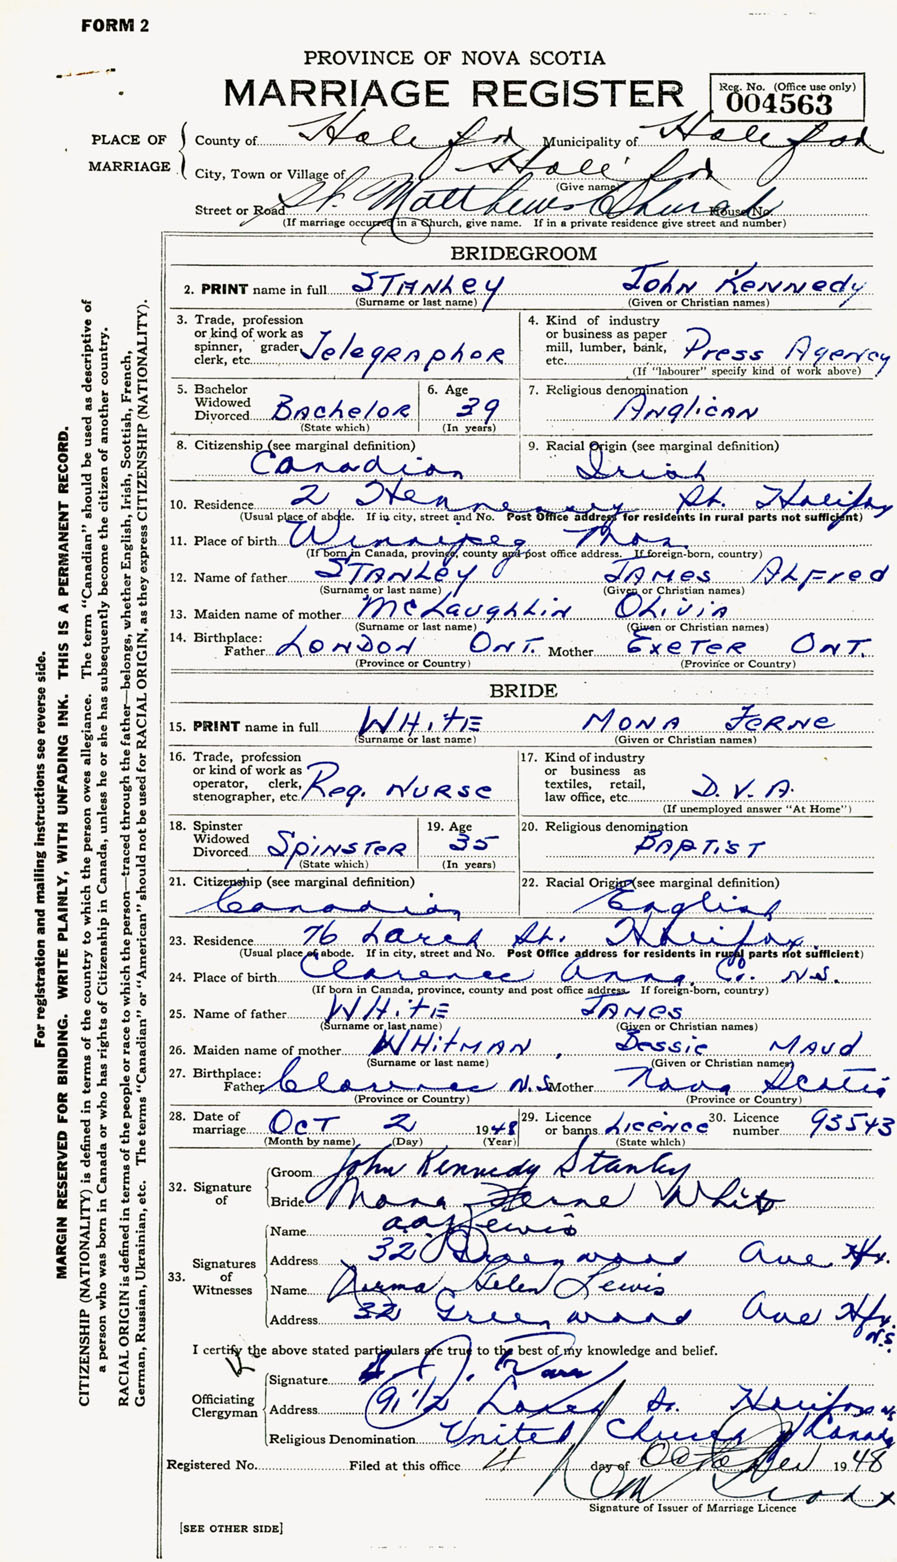 FORM 2
PROVINCE OF NOVA SCOTIA
MARRIAGE REGISTER
Reg. No. (Office use only)
004563
PLACE OF MARRIAGE
County of Halifax Municipality of Halifax
City, Town or Village of Halifax
(Give name)
Street or Road St. Matthews Church House No.
(If marriage occurred in a Church, give name. If in a private residence give street and number)
BRIDEGROOM
2. PRINT name in full STANLEY John Kennedy
(Surname or last name) (Given or Christian names)
3. Trade, profession or kind of work as spinner, grader, clerk, etc. Telegrapher
4. Kind of industry or business as paper mill, lumber, bank, etc. Press Agency
(If "labourer" specify kind of work above)
5. Bachelor Widowed Divorced Bachelor
(State which)
6. Age 39
(In years)
7. Religious denomination Anglican
8. Citizenship (see marginal definition) Canadian
9. Racial Origin (see marginal definition) Irish
10. Residence 2 Hennessey St. Halifax
(Usual place of abode. If in city, street and No. Post Office address for residents in rural parts not sufficient)
11. Place of birth Winnipeg Man
(If born in Canada, province, county and post office address. If foreign-born, country)
12. Name of father STANLEY JAMES ALFred
(Surname or last name) (Given or Christian names)
13. Maiden name of mother McLaughlin OLIVIA
(Surname or last name) (Given or Christian names)
14. Birthplace: Father LONDON ONT. Mother EXETER ONT.
(Province or Country) (Province or Country)
BRIDE
15. PRINT name in full WHITE MONA FERNE
(Surname or last name) (Given or Christian names)
16. Trade, profession or kind of work as operator, clerk, stenographer, etc. Reg. NURSE
17. Kind of industry or business as textiles, retail, law office, etc. D.V.A.
(If unemployed answer "At Home")
18. Spinster Widowed Divorced SPINSTER
(State which)
19. Age 35
(In years)
20. Religious denomination BAPTIST
21. Citizenship (see marginal definition) Canadian
22. Racial Origin (see marginal definition) English
23. Residence 76 Larch St. Halifax
(Usual place of abode. If in city, street and No. Post Office address for residents in rural parts not sufficient)
24. Place of birth Clarence Anna. Co. N.S.
(If born in Canada, province, county and post office address. If foreign-born, country)
25. Name of father WHITE JAMES
(Surname or last name) (Given or Christian names)
26. Maiden name of mother WHITMAN, Bessie MAUD
(Surname or last name) (Given or Christian names)
27. Birthplace: Father Clarence N.S. Mother Nova Scotia
(Province or Country) (Province or Country)
28. Date of marriage OCT 2 1948
(Month by name) (Day) (Year)
29. Licence or banns Licence
(State which)
30. Licence number 93543
32. Signature of
Groom John Kennedy Stanley
Bride Mona Ferne White
33. Signatures of Witnesses
Name Lewis
Address 32 Greenwood Ave Hfx.
Name Norma Helen Lewis
Address 32 Greenwood Ave Hfx. N.S.
I certify the above stated particulars are true to the best of my knowledge and belief.
Officiating Clergyman
Signature
Address 91 1/2 Larch St. Halifax
Religious Denomination United Church Canada
Registered No. Filed at this office 4 day of October 1948
Signature of Issuer of Marriage Licence
[SEE OTHER SIDE]
For registration and mailing instructions see reverse side.
MARGIN RESERVED FOR BINDING. WRITE PLAINLY, WITH UNFADING INK. THIS IS A PERMANENT RECORD.
CITIZENSHIP (NATIONALITY) is defined in terms of the country to which the person owes allegiance. The term "Canadian" should be used as descriptive of
a person who was born in Canada or who has rights of Citizenship in Canada, unless he or she has subsequently become the citizen of another country.
RACIAL ORIGIN is defined in terms of the people or race to which the person—traced through the father—belongs, whether English, Irish, Scottish, French,
German, Russian, Ukrainian, etc. The terms "Canadian" or "American" should not be used for RACIAL ORIGIN, as they express CITIZENSHIP (NATIONALITY).